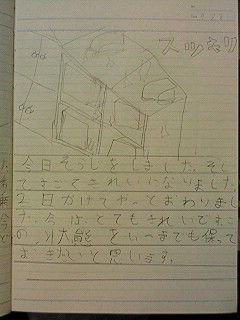 スッキリ
今日そうじをしました。そし
てすごくきれいになりました。
2日かけてやっとおわりまし
た。今はとてもきれいです。こ
の状態をいつまでも保って
おきたいと思います。